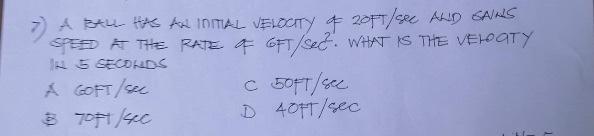 7) A BALL HAS AN INITIAL VELOCITY OF 20FT/sec AND GAINS
SPEED AT THE RATE OF 6FT/sec². WHAT IS THE VELOCITY
IN 5 SECONDS
A 60FT/sec C 50FT/sec
B 70FT/sec D 40FT/sec